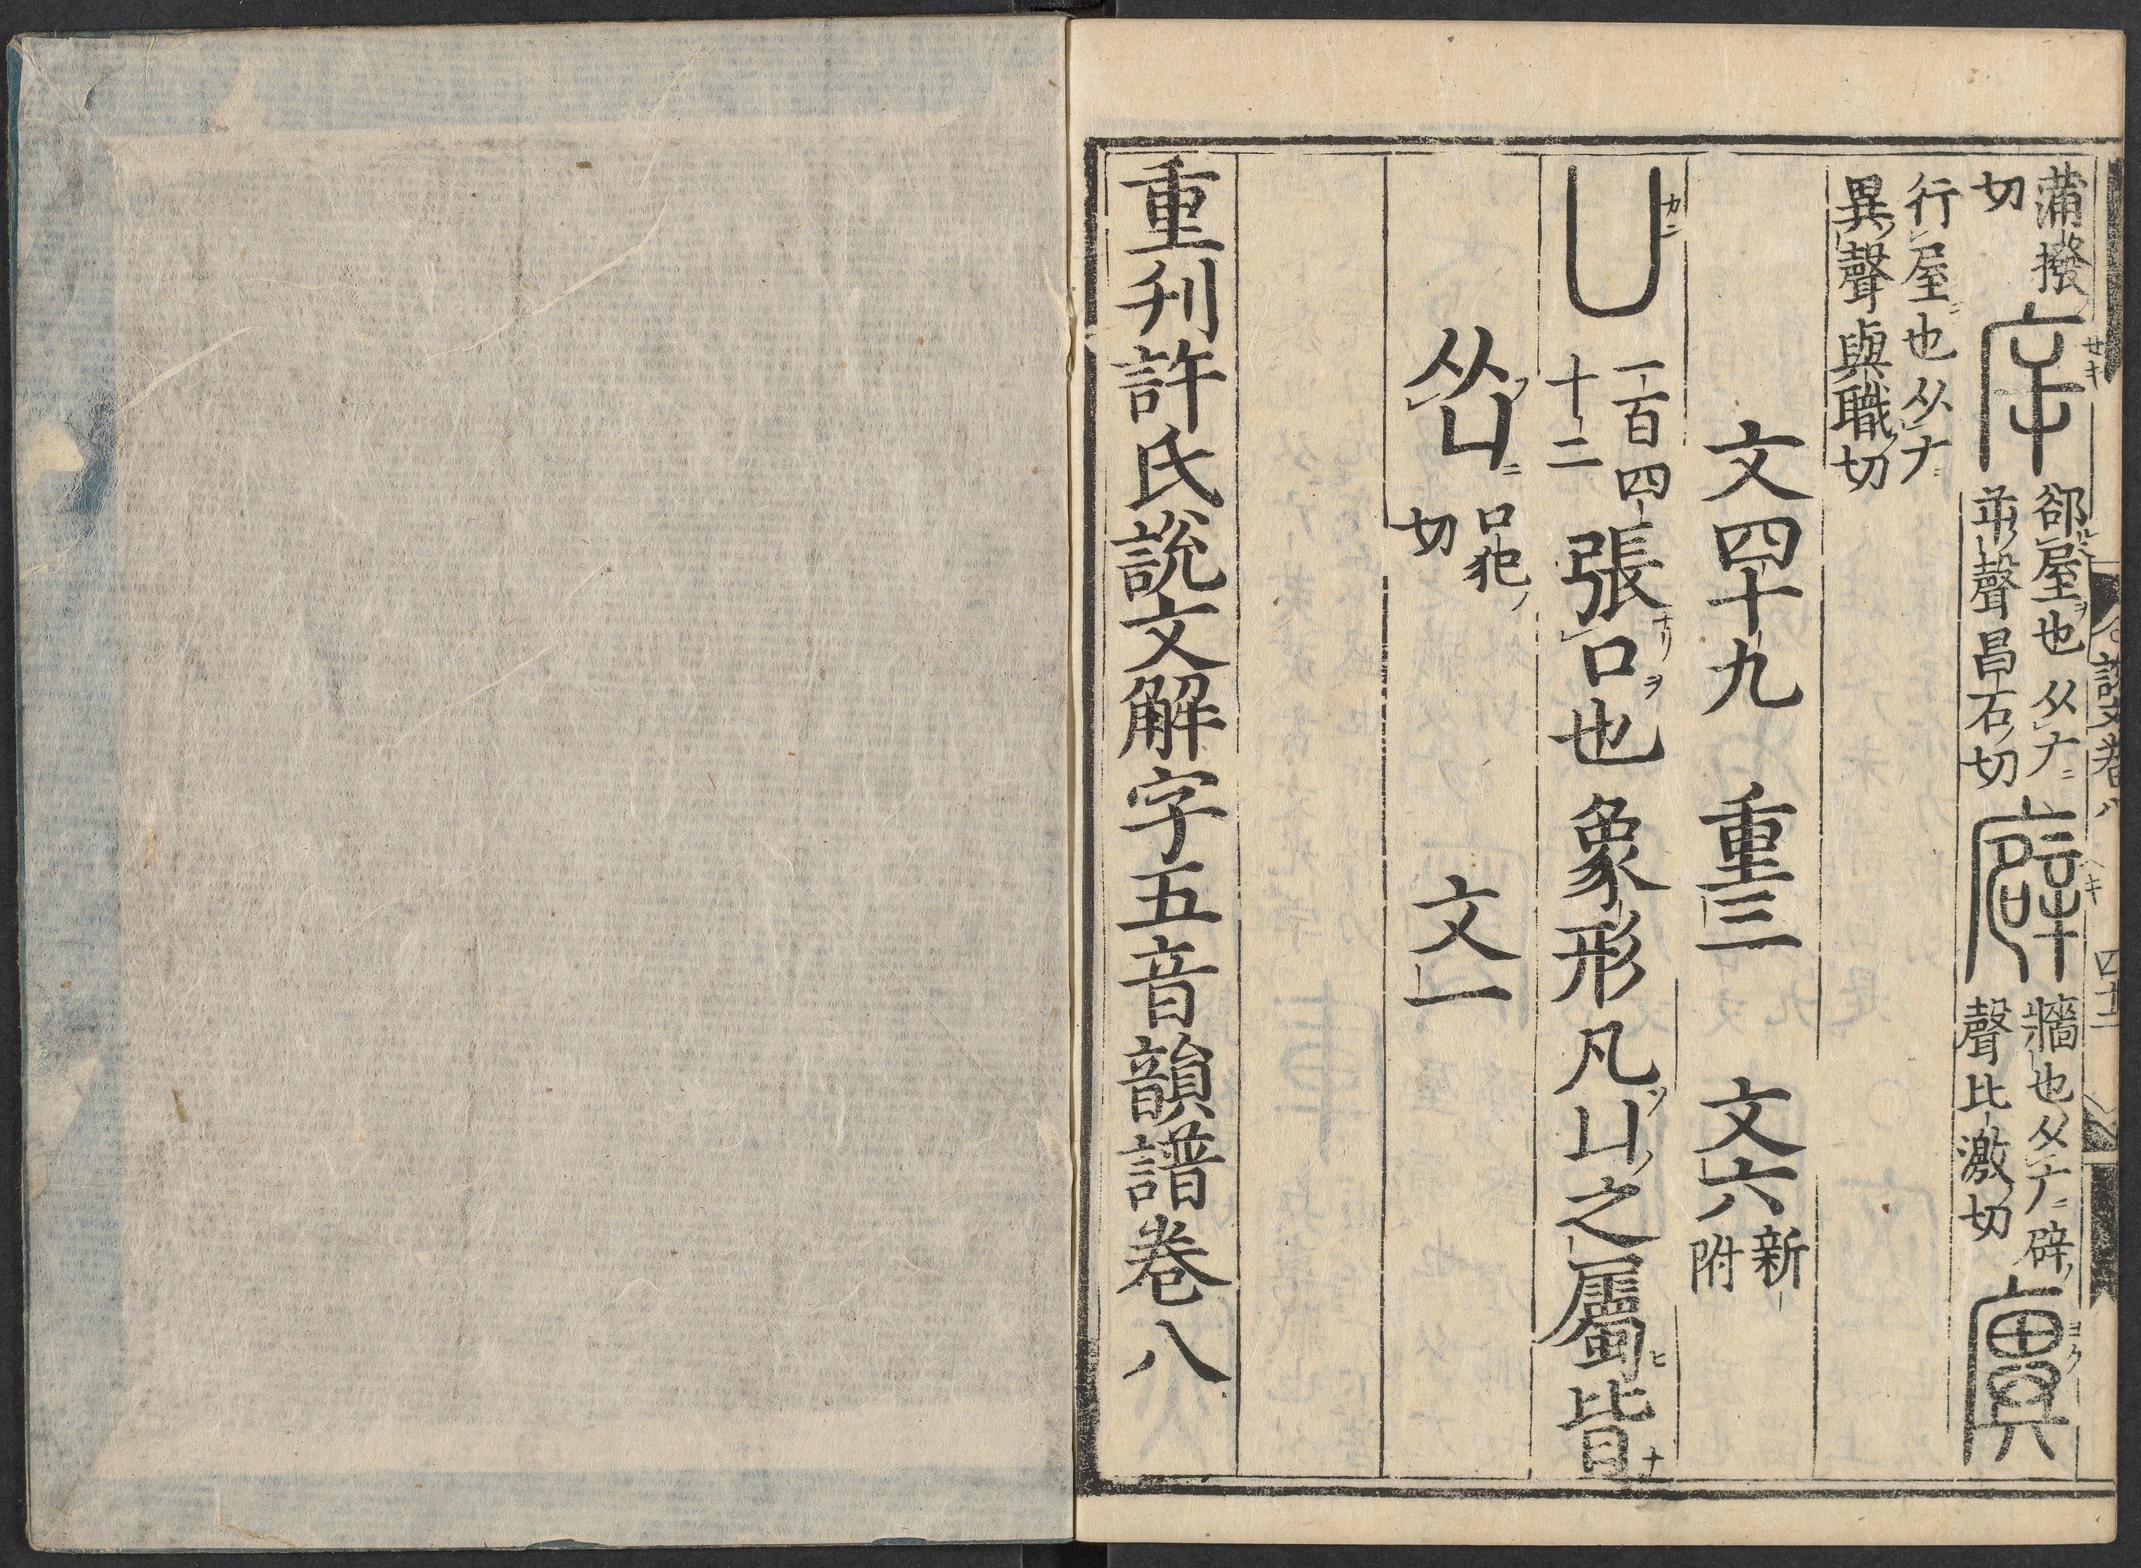 說文卷八
蒲撥切 㡿 郤屋也从广屰聲昌石切 廦 牆也从广辟聲比激切 廙
行屋也从广異聲與職切
文四十九 重三 文六新附
凵 一百四十二 張口也象形凡凵之屬皆
从凵 口犯切 文一
重刊許氏說文解字五音韻譜卷八